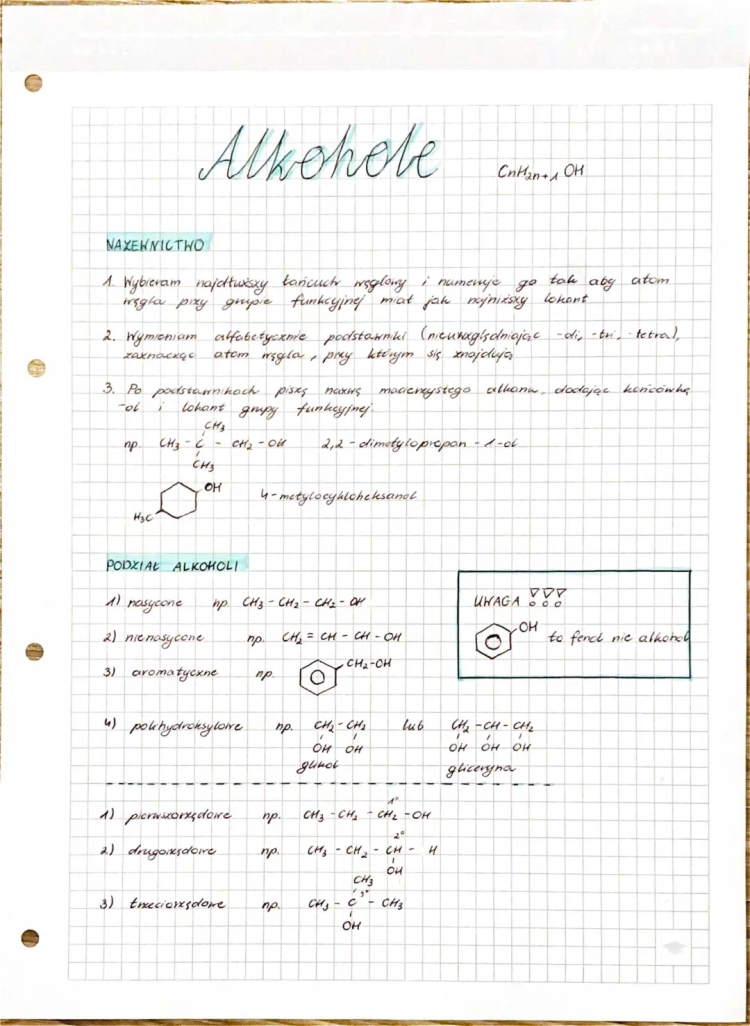 Alkohole
CnH2n+1 OH
NAZEWNICTWO
1. Wybieram najdłuższy łańcuch węglowy i numeruję go tak aby atom
węgla przy grupie funkcyjnej miał jak najniższy lokant
2. Wymieniam alfabetycznie podstawniki (nieuwzględniając -di, -tri, -tetra),
zaznaczając atom węgla, przy którym się znajdują
3. Po podstawnikach piszę nazwę macierzystego alkanu, dodając końcówkę
-ol i lokant grupy funkcyjnej.
CH3
np. CH3 - C - CH2 - OH 2,2 - dimetylopropan - 1-ol
CH3
OH
H3C
4-metylocykloheksanol
PODZIAŁ ALKOHOLI
1) nasycone np. CH3 - CH2 - CH2 - OH
2) nienasycone np. CH2 = CH - CH - OH
3) aromatyczne np. CH2-OH
UWAGA !!!
OH
to fenol nie alkohol
4) polihydroksylowe np. CH2 - CH2 lub CH2 - CH - CH2
OH OH OH OH OH
glikol gliceryna
1) pierwszorzędowe np. CH3 - CH2 - CH2 - OH
1°
2) drugorzędowe np. CH3 - CH2 - CH - H
2°
OH
CH3
3) trzeciorzędowe np. CH3 - C - CH3
3°
OH